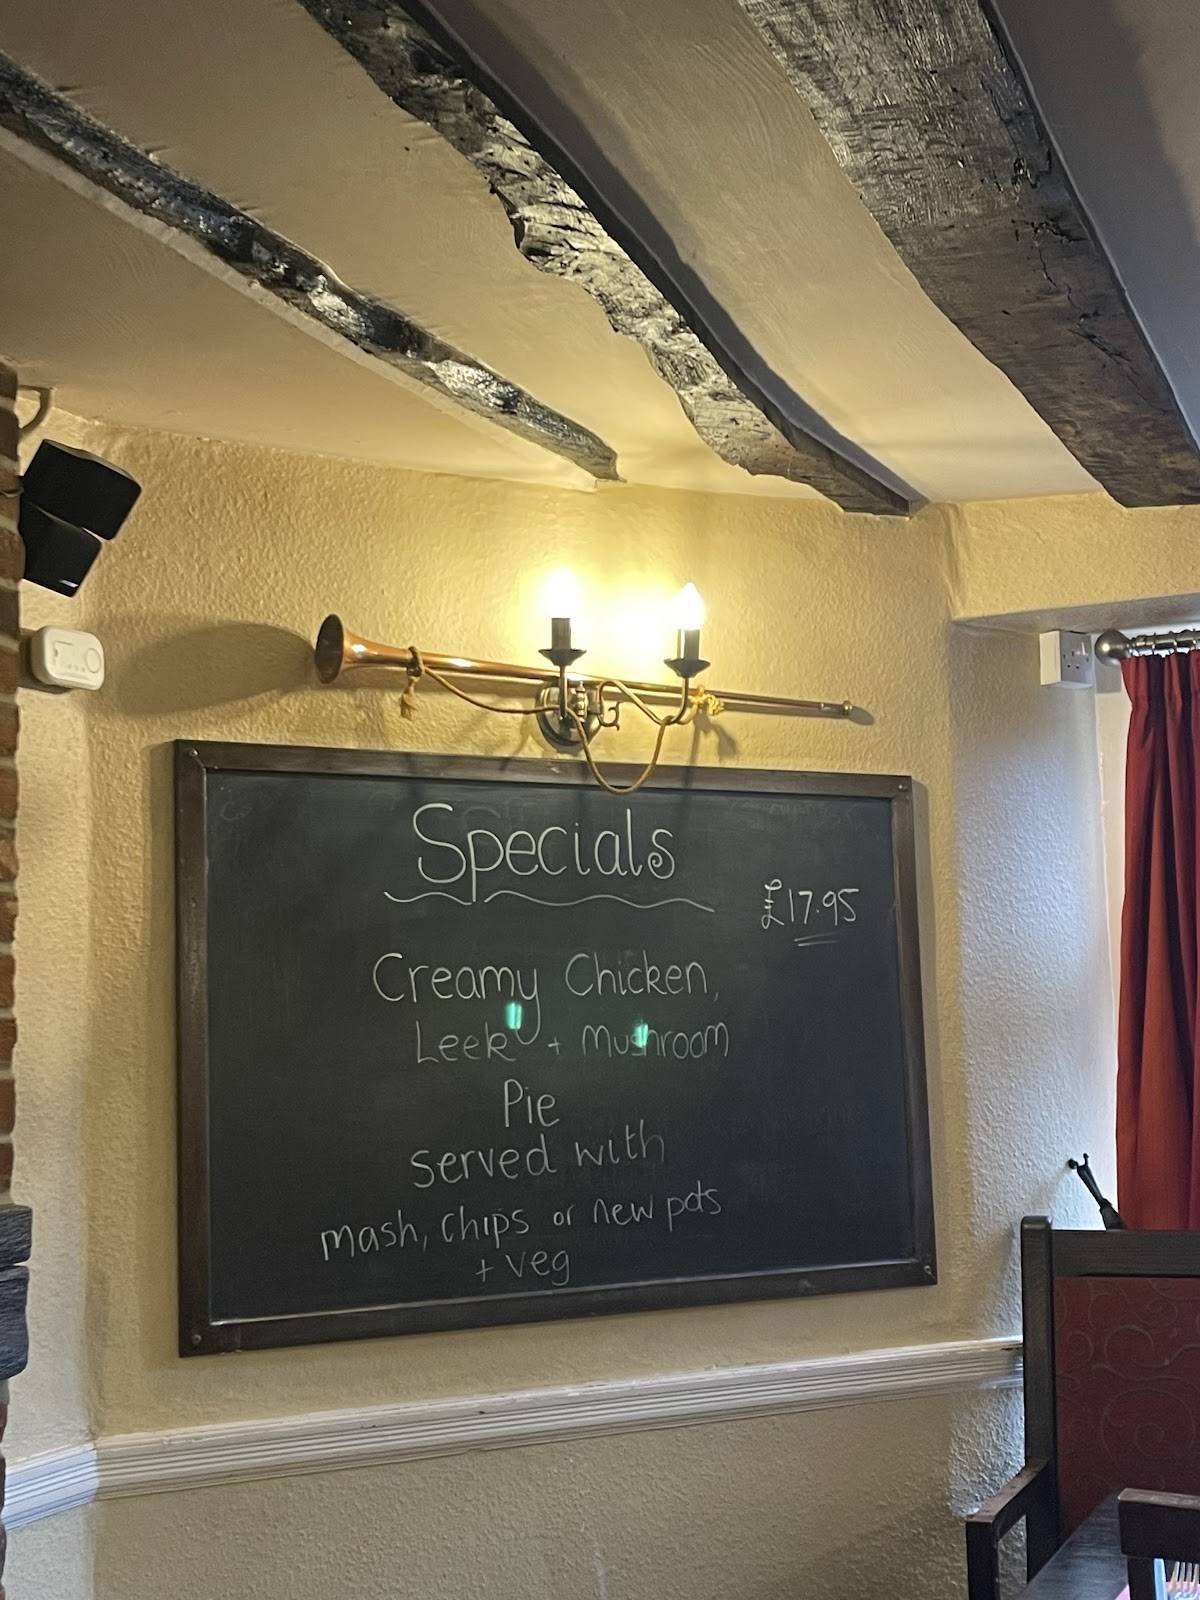 Specials
£17.95
Creamy Chicken,
Leek + Mushroom
Pie
served with
mash, chips or new pots
+ veg